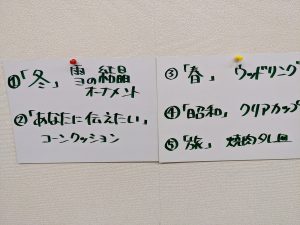 ①「冬」 雪の結晶
オーナメント
②「あなたに伝えたい」
コーンクッション
③「春」 ウッドリング
④「昭和」 クリアカップ
⑤「旅」 焼肉タレ皿